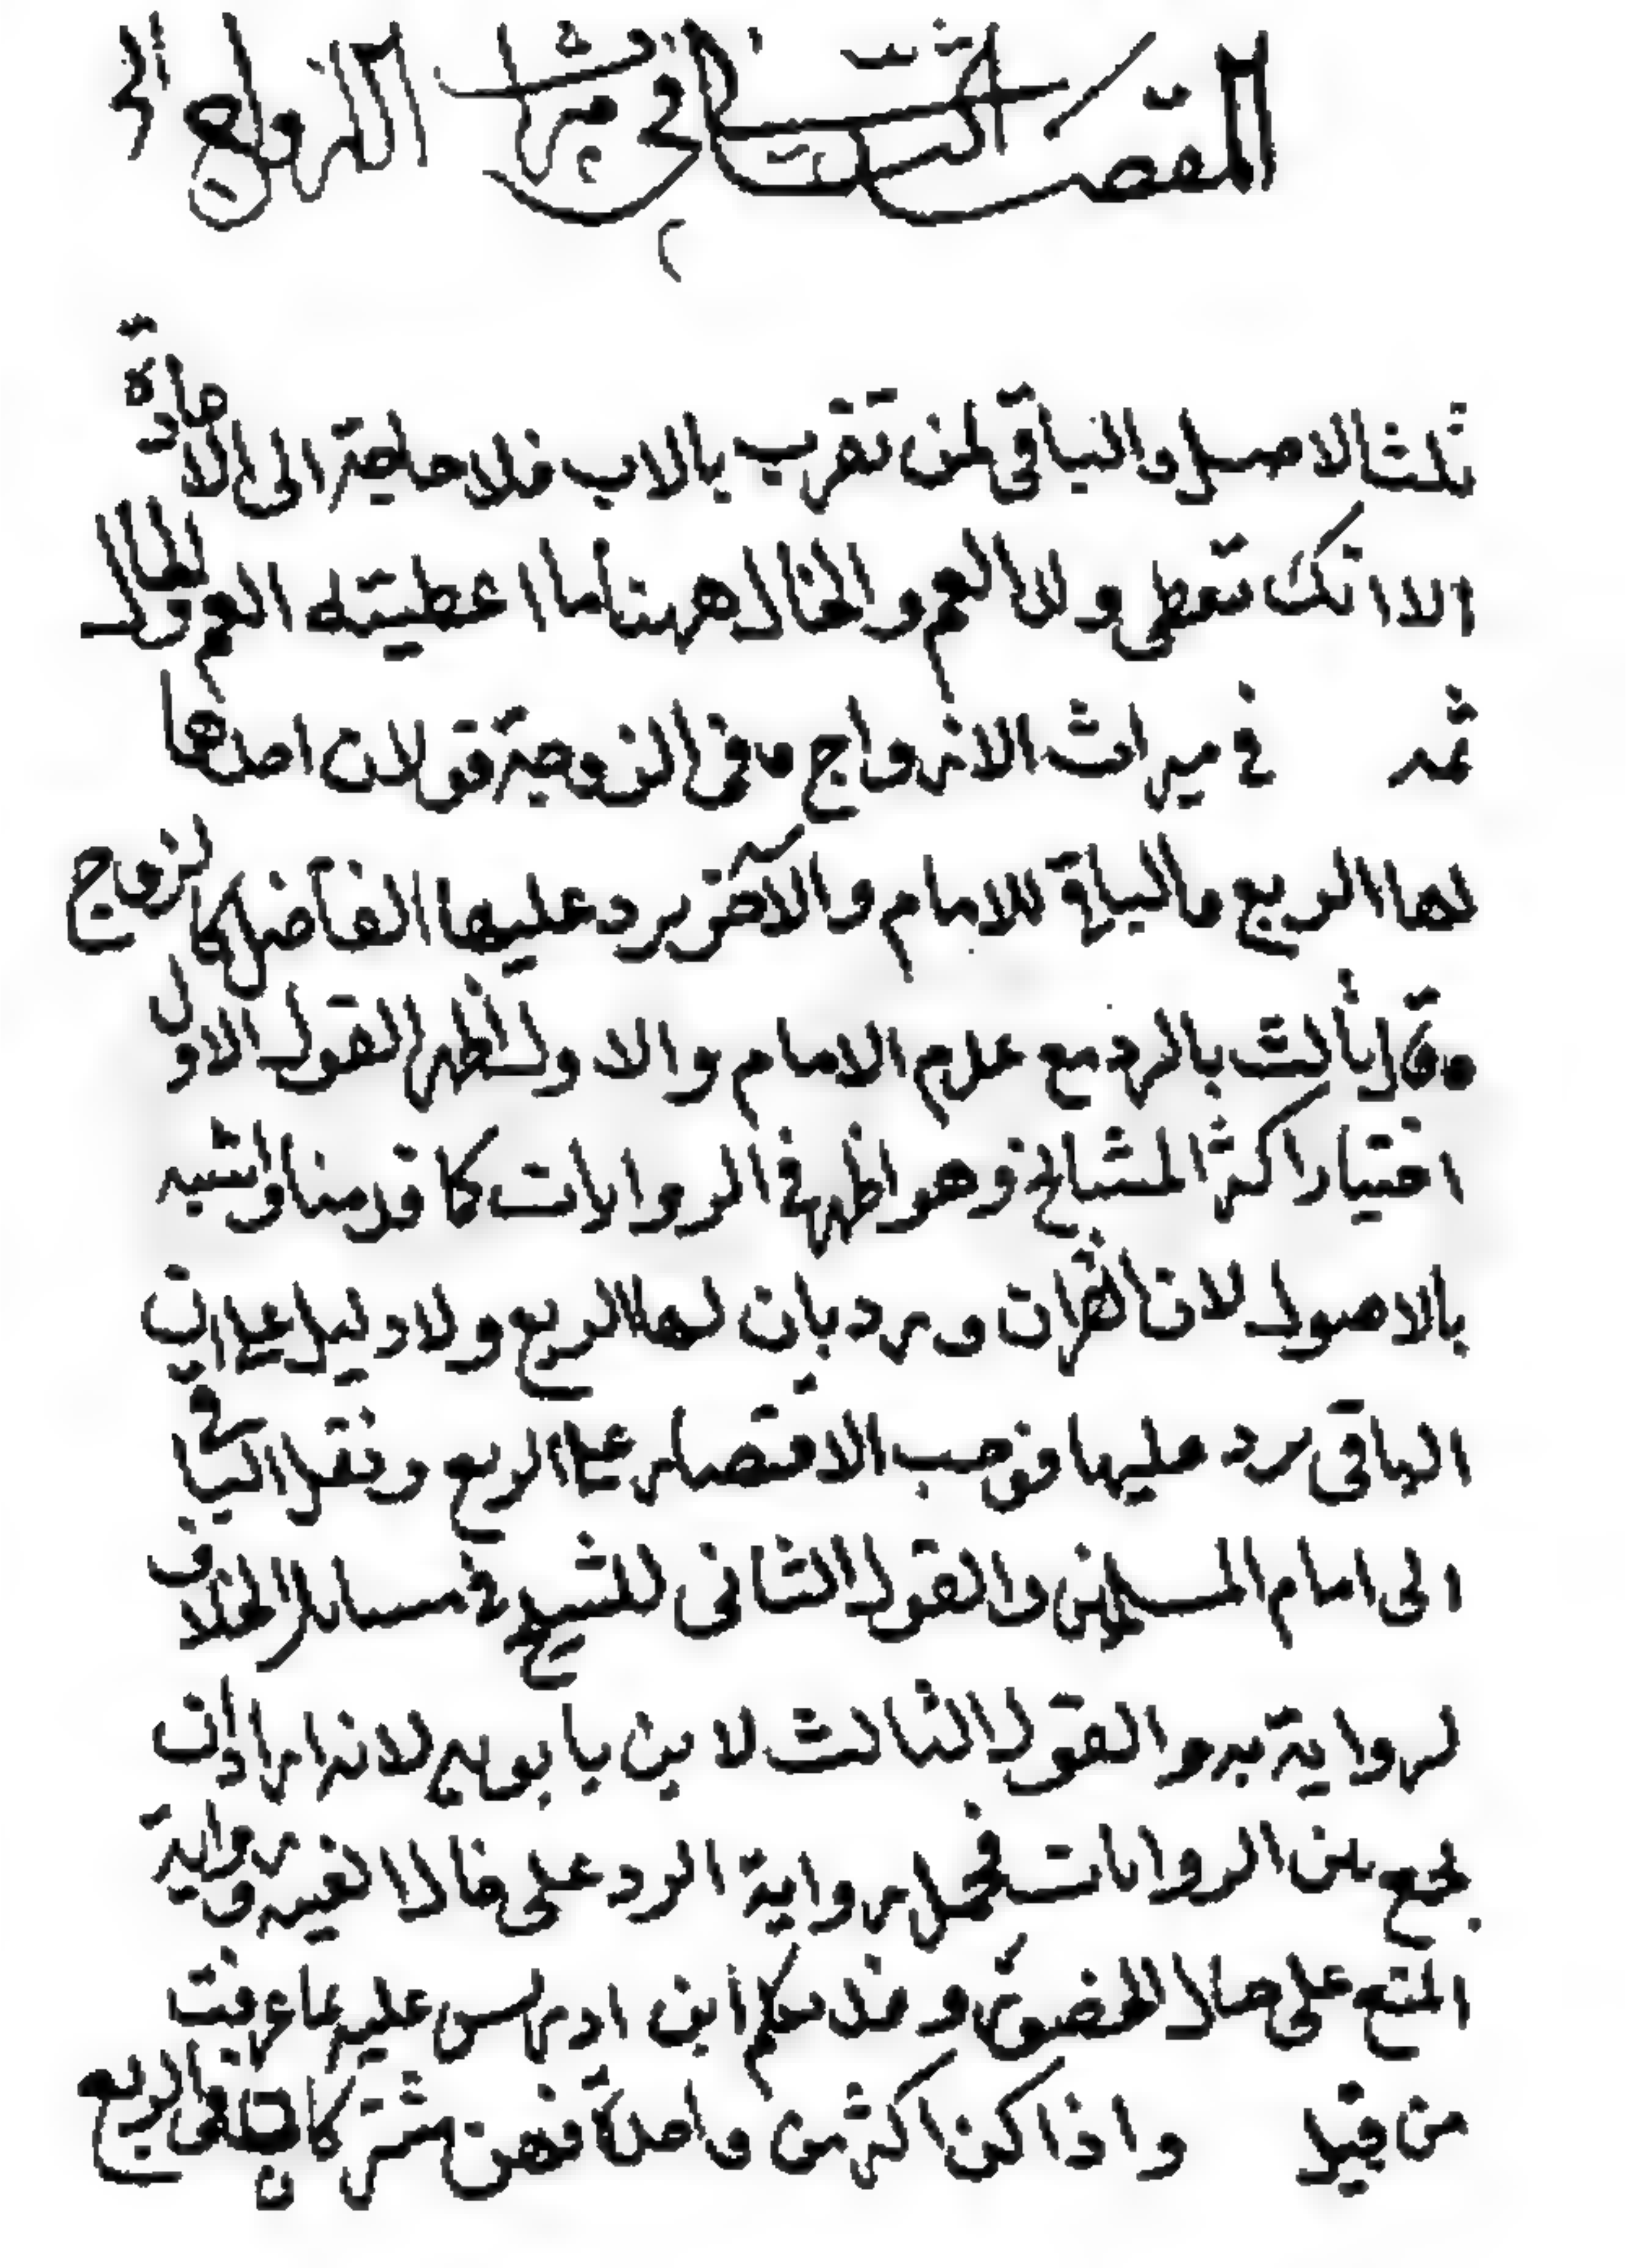 المقصد الثاني في ميراث الازواج
ثلث الاصل والباقي لمن تقرب بالاب فلا حاجة الى الاعادة
الا انك تعطى ولد العم والخال ههنا ما اعطيته العم والخال
ثمه في ميراث الازواج وفى الزوجة قولان احدها
لها الربع والبقية للامام والآخر يرد عليها الفاضل كالزوج
وقال ثالث بالرد مع عدم الامام والاول اظهر القول الاول
اختيار اكثر المشايخ وهو اظهر في الروايات كما قدمنا واشبه
بالاصول لان القرآن ورد بان لها الربع ولا دليل على ان
الباقى يرد عليها فوجب الاقتصار على الربع ونقل الباقي
الى امام المسلمين والقول الثانى للشيخ في مسائل الخلاف
لرواية به والقول الثالث لابن بابويه لانه اراد ان
يجمع بين الروايات فحمل رواية الرد على حال الغيبه ورواية
المنع على حال الحضور وقد تكلم ابن ادريس عليه بما عرفت
من قبل واذا كن اكثر من واحدة فهن مشتركات في الربع